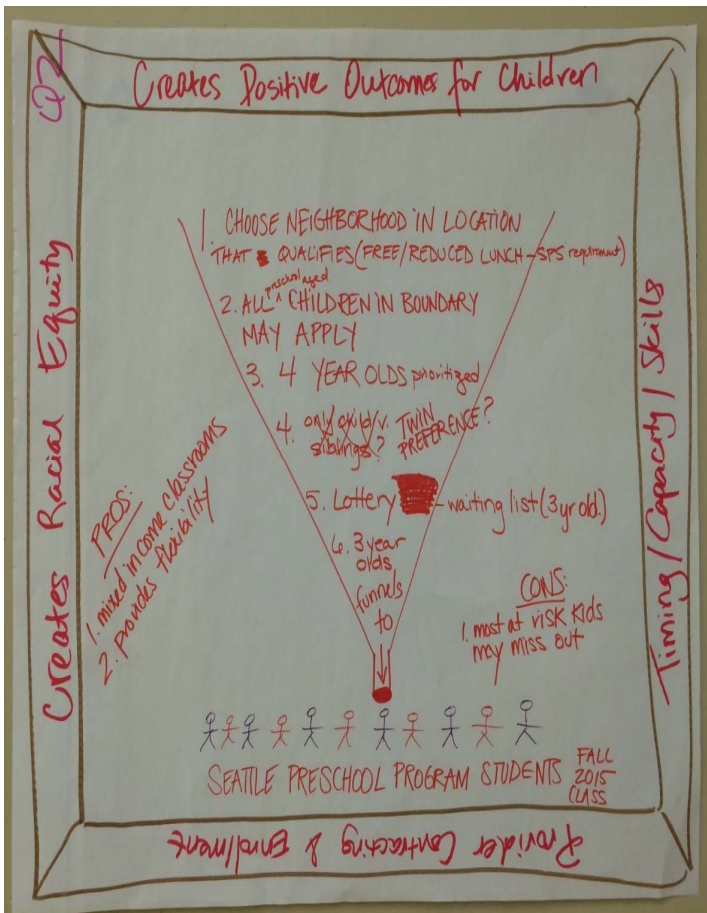 Q2
Creates Positive Outcomes for Children
Creates Racial Equity
Timing / Capacity / Skills
1. CHOOSE NEIGHBORHOOD IN LOCATION
THAT QUALIFIES (FREE/REDUCED LUNCH - SPS requirement)
2. ALL preschool aged CHILDREN IN BOUNDARY
MAY APPLY
3. 4 YEAR OLDS prioritized
4. only child v. TWIN
siblings? PREFERENCE?
5. Lottery - waiting list (3 yr old.)
6. 3 year
olds
funnels
to
PROS:
1. mixed income classrooms
2. provides flexibility
CONS:
1. most at risk kids
may miss out
SEATTLE PRESCHOOL PROGRAM STUDENTS
FALL
2015
CLASS
Provider Contracting & Enrollment